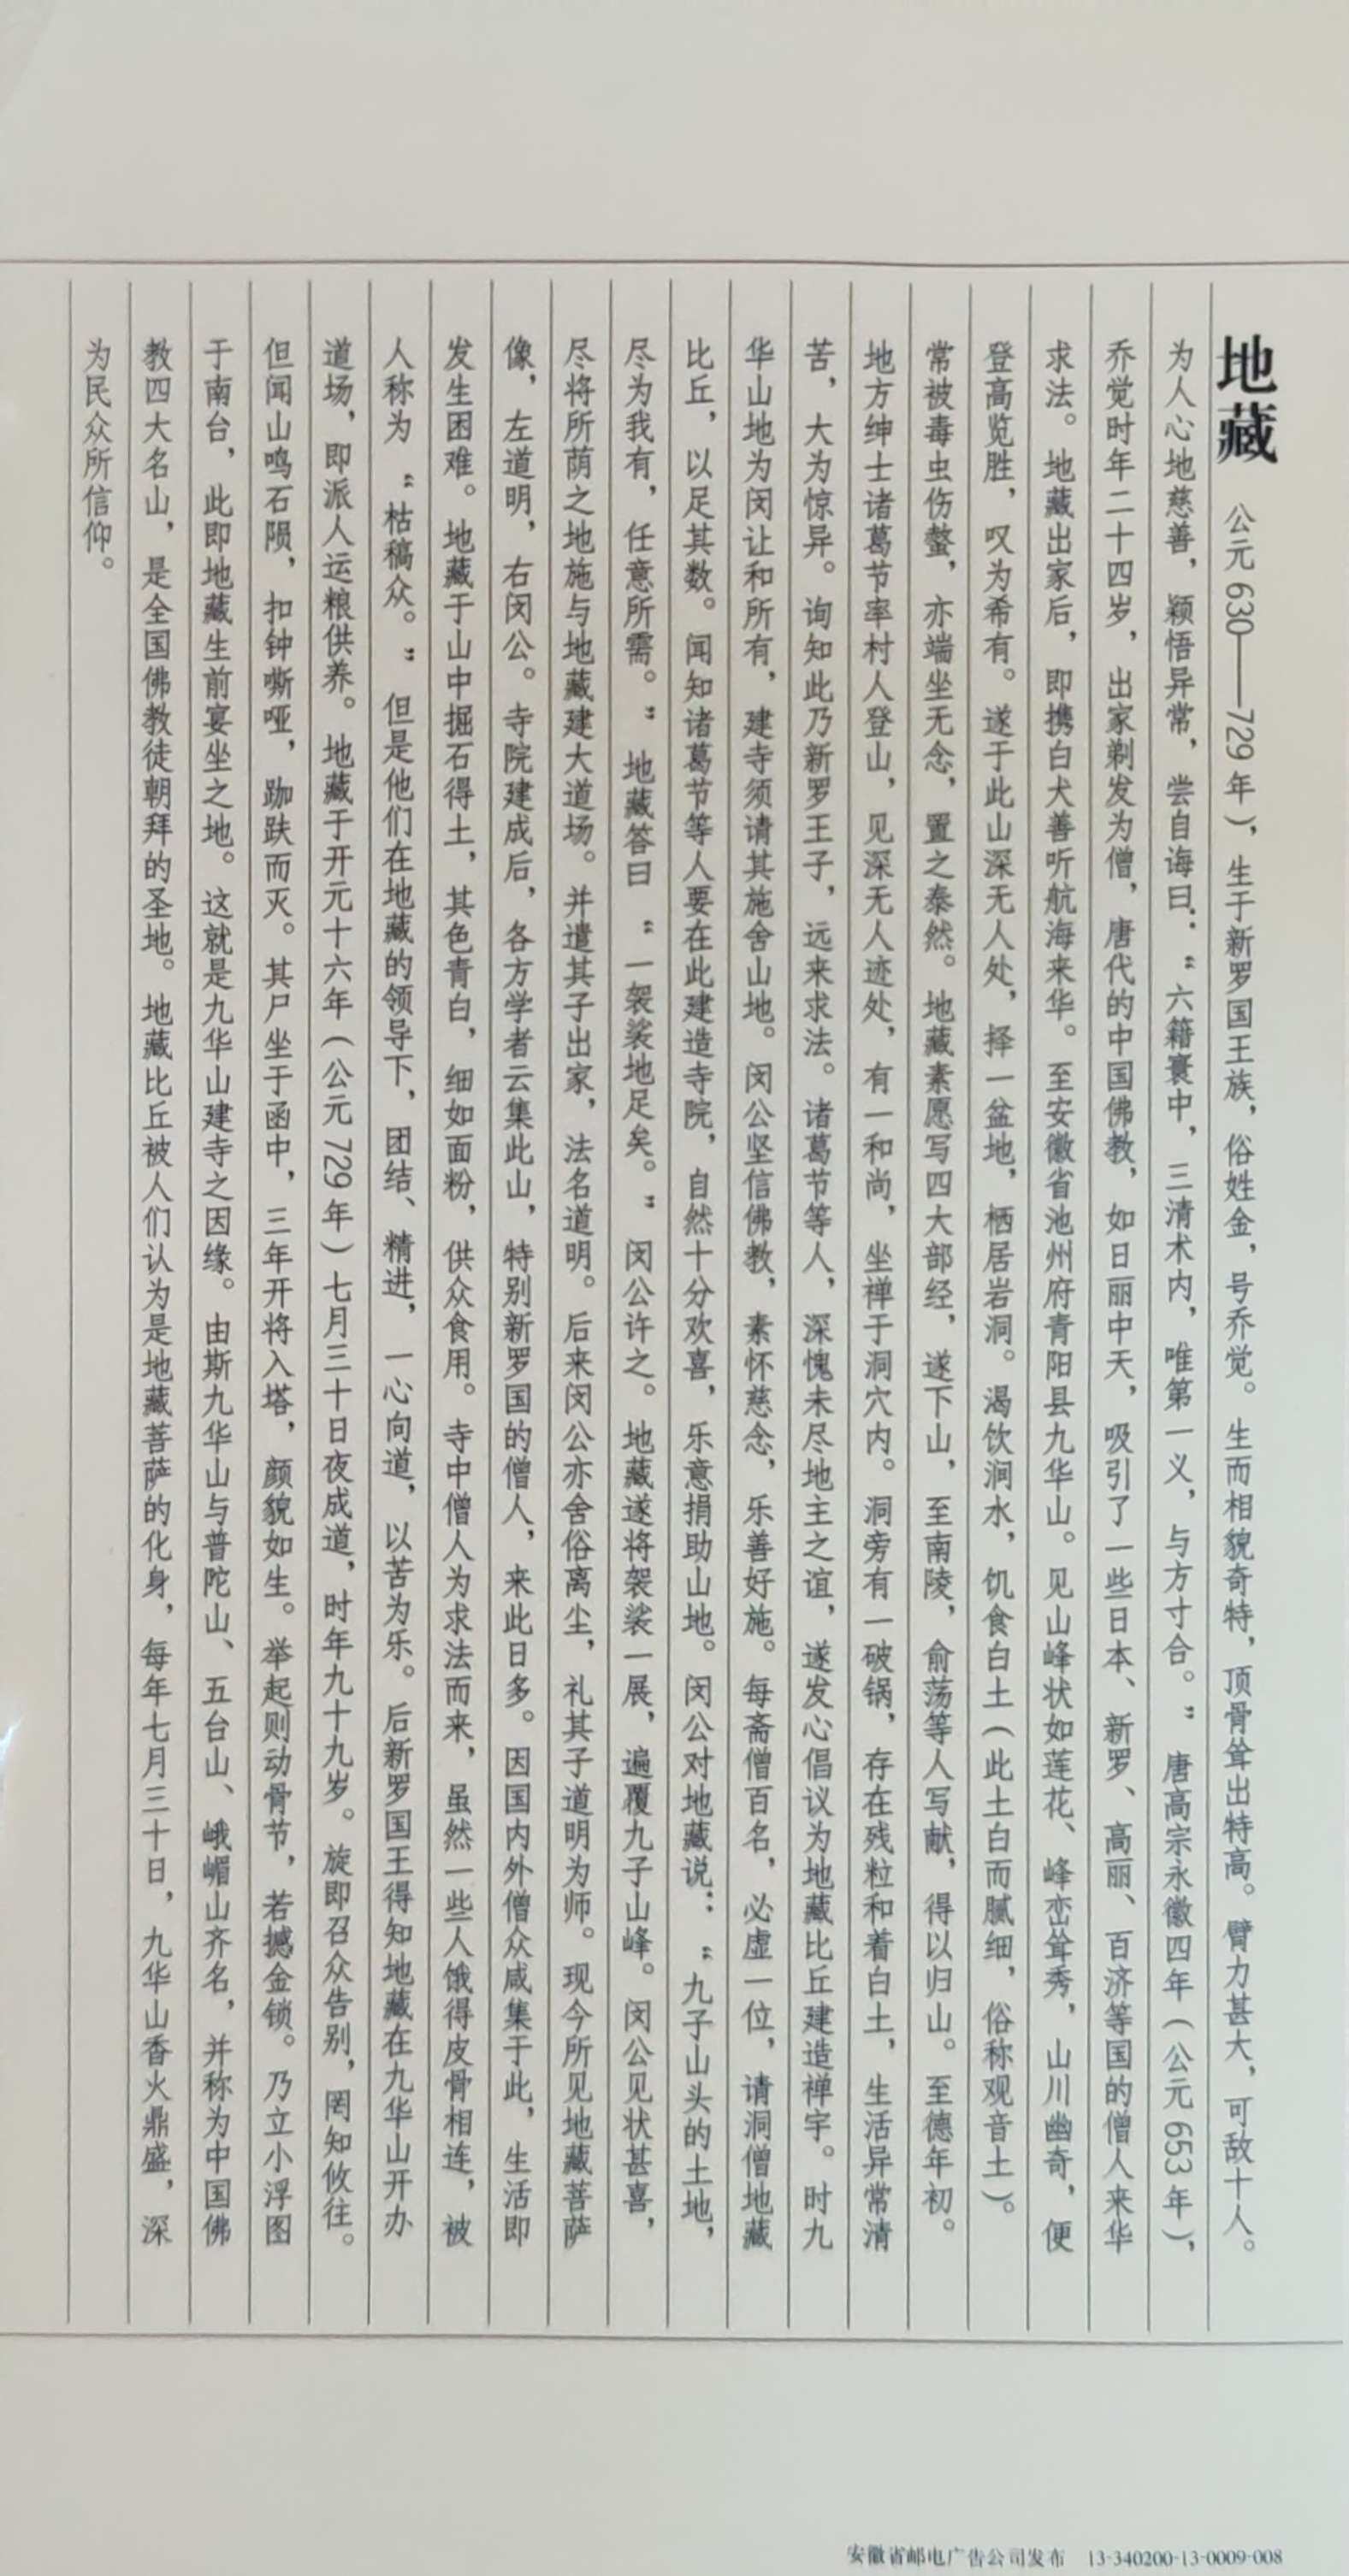 地藏 公元630——729年），生于新罗国王族，俗姓金，号乔觉。生而相貌奇特，顶骨耸出特高。臂力甚大，可敌十人。
为人心地慈善，颖悟异常，尝自诲曰：“六籍寰中，三清术内，唯第一义，与方寸合。”唐高宗永徽四年（公元653年），
乔觉时年二十四岁，出家剃发为僧，唐代的中国佛教，如日丽中天，吸引了一些日本、新罗、高丽、百济等国的僧人来华
求法。地藏出家后，即携白犬善听航海来华。至安徽省池州府青阳县九华山。见山峰状如莲花、峰峦耸秀，山川幽奇，便
登高览胜，叹为希有。遂于此山深无人处，择一盆地，栖居岩洞。渴饮涧水，饥食白土（此土白而腻细，俗称观音土）。
常被毒虫伤螫，亦端坐无念，置之泰然。地藏素愿写四大部经，遂下山，至南陵，俞荡等人写献，得以归山。至德年初。
地方绅士诸葛节率村人登山，见深无人迹处，有一和尚，坐禅于洞穴内。洞旁有一破锅，存在残粒和着白土，生活异常清
苦，大为惊异。询知此乃新罗王子，远来求法。诸葛节等人，深愧未尽地主之谊，遂发心倡议为地藏比丘建造禅宇。时九
华山地为闵让和所有，建寺须请其施舍山地。闵公坚信佛教，素怀慈念，乐善好施。每斋僧百名，必虚一位，请洞僧地藏
比丘，以足其数。闻知诸葛节等人要在此建造寺院，自然十分欢喜，乐意捐助山地。闵公对地藏说：“九子山头的土地，
尽为我有，任意所需。”地藏答曰“一袈裟地足矣。”闵公许之。地藏遂将袈裟一展，遍覆九子山峰。闵公见状甚喜，
尽将所荫之地施与地藏建大道场。并遣其子出家，法名道明。后来闵公亦舍俗离尘，礼其子道明为师。现今所见地藏菩萨
像，左道明，右闵公。寺院建成后，各方学者云集此山，特别新罗国的僧人，来此日多。因国内外僧众咸集于此，生活即
发生困难。地藏于山中掘石得土，其色青白，细如面粉，供众食用。寺中僧人为求法而来，虽然一些人饿得皮骨相连，被
人称为“枯稿众。”但是他们在地藏的领导下，团结、精进，一心向道，以苦为乐。后新罗国王得知地藏在九华山开办
道场，即派人运粮供养。地藏于开元十六年（公元729年）七月三十日夜成道，时年九十九岁。旋即召众告别，罔知攸往。
但闻山鸣石陨，扣钟嘶哑，跏趺而灭。其尸坐于函中，三年开将入塔，颜貌如生。举起则动骨节，若撼金锁。乃立小浮图
于南台，此即地藏生前宴坐之地。这就是九华山建寺之因缘。由斯九华山与普陀山、五台山、峨嵋山齐名，并称为中国佛
教四大名山，是全国佛教徒朝拜的圣地。地藏比丘被人们认为是地藏菩萨的化身，每年七月三十日，九华山香火鼎盛，深
为民众所信仰。
安徽省邮电广告公司发布 13-340200-13-0009-008